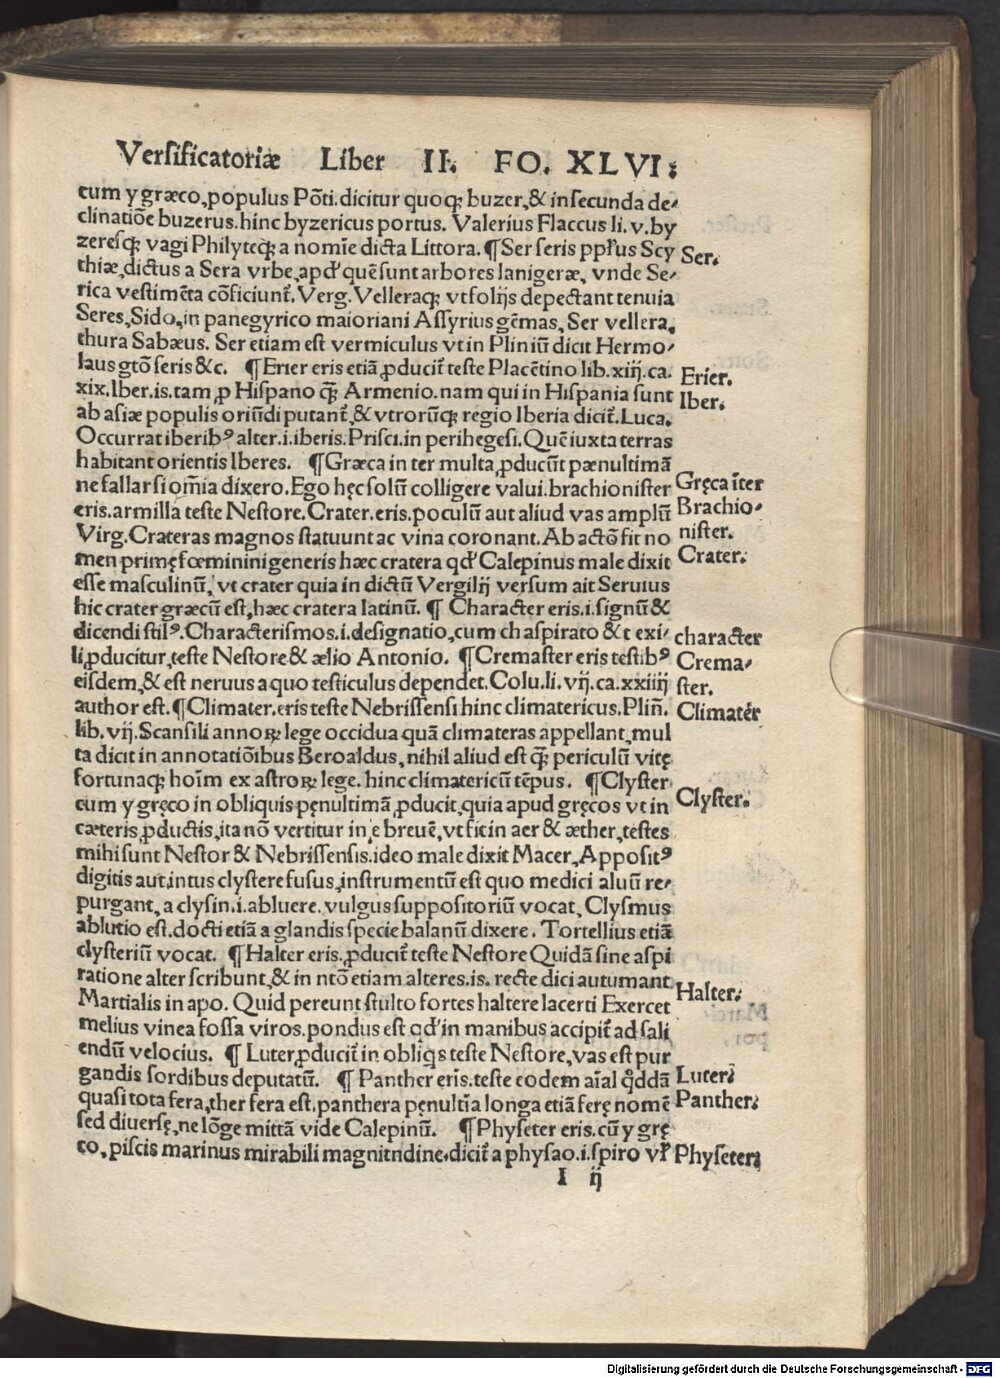 Versificatoriæ Liber II. FO. XLVI.
cum y græco, populus Põti. dicitur quoq; buzer, & in secunda de⸗
clinatiõe buzerus. hinc byzericus portus. Valerius Flaccus li. v. by
zeresq; vagi Philyreq; a nomĩe dicta Littora. ¶ Ser seris ppľus Scy
Ser.
thiæ, dictus a Sera vrbe, apď quẽ sunt arbores lanigeræ, vnde Se⸗
rica vestimẽta cõficiunt᷑. Verg. Velleraq; vt folijs depectant tenuia
Seres, Sido, in panegyrico maioriani Assyrius gẽmas, Ser vellera,
thura Sabæus. Ser etiam est vermiculus vt in Pliniũ dicit Hermo⸗
laus gtõ seris &c. ¶ Erier eris etiã ꝓducit᷑ teste Placẽtino lib. xiij. ca.
Erier.
xix. Iber. is. tam ꝓ Hispano q̃; Armenio. nam qui in Hispania sunt
Iber.
ab asiæ populis oriũdi putant᷑, & vtrorũq; regio Iberia dicit᷑. Luca.
Occurrat iberibꝰ alter. i. iberis. Prisci. in perihegesi. Quẽ iuxta terras
habitant orientis Iberes. ¶ Græca in ter multa ꝓducũt pænultimã
Gręca ĩter
ne fallar si om̃ia dixero. Ego hęc solũ colligere valui. brachionister
eris. armilla teste Nestore. Crater. eris. poculũ aut aliud vas amplũ
Brachio⸗
nister.
Virg. Crateras magnos statuunt ac vina coronant. Ab actõ fit no
men primę fœminini generis hæc cratera qď Calepinus male dixit
Crater.
esse masculinũ, vt crater quia in dictũ Vergilij versum ait Seruius
hic crater græcũ est, hæc cratera latinũ. ¶ Character eris. i. signũ &
dicendi stilꝰ. Characterismos. i. designatio, cum ch aspirato & t exi⸗
character
li, ꝓducitur, teste Nestore & ælio Antonio. ¶ Cremaster eris testibꝰ
Crema⸗
ster.
eisdem, & est neruus a quo testiculus dependet. Colu. li. vij. ca. xxiiij
author est. ¶ Climater. eris teste Nebrissensi hinc climatericus. Plin̄.
Climater
lib. vij. Scansili annoꝝ lege occidua quã climateras appellant, mul
ta dicit in annotatiõibus Beroaldus, nihil aliud est q̃; periculũ vitę
fortunaq; hoĩm ex astroꝝ lege. hinc climatericũ tẽpus. ¶ Clyster
Clyster.
cum y gręco in obliquis pęnultimã ꝓducit, quia apud gręcos vt in
cæteris ꝓductis, ita nõ vertitur in e breuẽ, vt fit in aer & æther, testes
mihi sunt Nestor & Nebrissensis. ideo male dixit Macer, Appositꝰ
digitis aut intus clystere fusus, instrumentũ est quo medici aluũ re⸗
purgant, a clysin. i. abluere. vulgus suppositoriũ vocat, Clysmus
ablutio est. docti etiã a glandis specie balanũ dixere. Tortellius etiã
clysteriũ vocat. ¶ Halter eris. ꝓducit᷑ teste Nestore Quidã sine aspi
ratione alter scribunt, & in ntõ etiam alteres. is. recte dici autumant
Halter.
Martialis in apo. Quid pereunt stulto fortes haltere lacerti Exercet
melius vinea fossa viros. pondus est qď in manibus accipit᷑ ad sali
endũ velocius. ¶ Luter ꝓducit᷑ in obliqs teste Nestore, vas est pur
gandis sordibus deputatũ. ¶ Panther eris. teste eodem aĩal qđdã
Luter.
quasi tota fera, ther fera est. panthera pęnultĩa longa etiã ferę nomẽ
Panther.
sed diuersę, ne lõge mittã vide Calepinũ. ¶ Physeter eris. cũ y grę
co, piscis marinus mirabili magnitudine. dicit᷑ a physao. i. spiro vľ
Physeter.
I ij
Digitalisierung gefördert durch die Deutsche Forschungsgemeinschaft - DFG